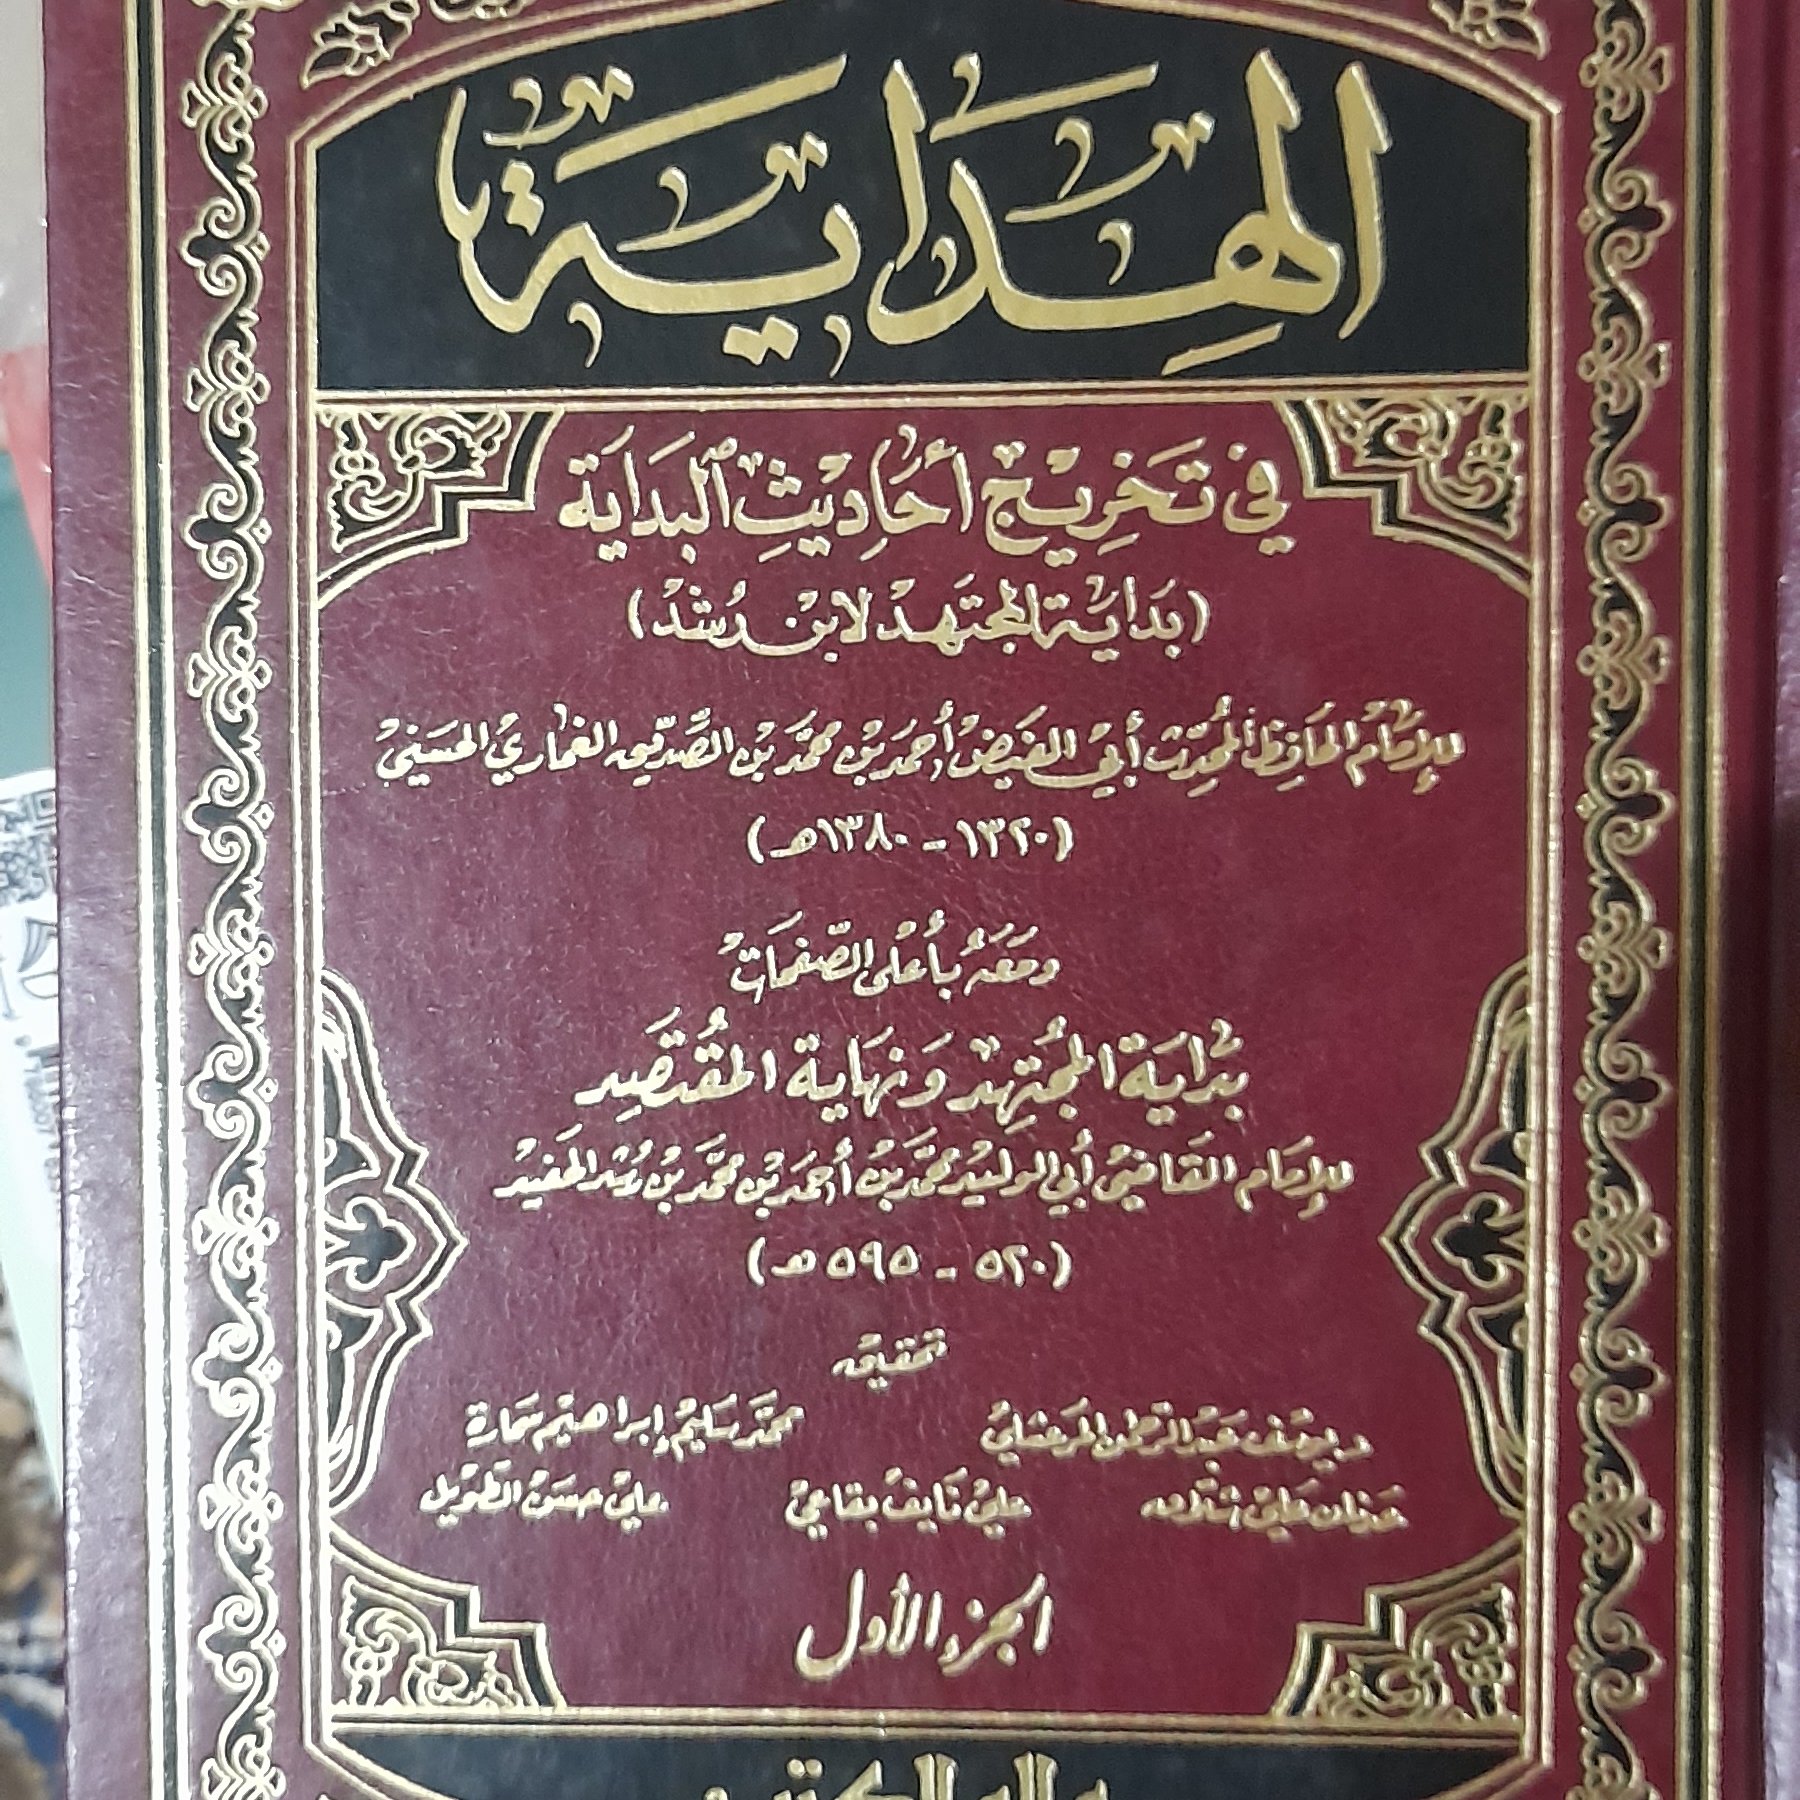 الهِدَايَة
في تَخرِيْج أحَادِيْثِ البَدَايَة
(بَدايَة المجتَهد لابن رُشد)
للإمَام الحَافِظ المحُدِّث أبي الفَيض أحمَد بن محمَّد بن الصِّدِّيق الغمَاري الحسَني
(١٣٢٠ - ١٣٨٠هـ)
ومَعَهُ بأعْلى الصَّفحَات
بدَايَة المجُتَهِد وَنهَاية المقُتَصِد
للإمَام القَاضي أبي الوليد محمَّد بن أحمَد بن محمَّد بن رُشد الحَفيد
(٥٢٠ - ٥٩٥ هـ)
تحقيق
يوسُف عَبد الرّحمن المرعَشلي محمَّد سَليم إبراهيم سَمَارة
عَدنان عَلي شلّاق علي نَايف بقاعي علي حسَن الطّويل
الجزء الأول